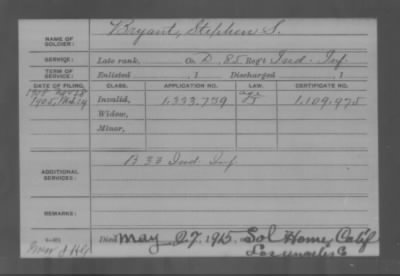 Bryant, Stephen S.
NAME OF SOLDIER:
SERVICE: Late rank, Co. D, 85 Reg't Ind. Inf.
TERM OF SERVICE: Enlisted , 1 Discharged , 1
DATE OF FILING. CLASS. APPLICATION NO. LAW. CERTIFICATE NO.
1905, Invalid, 1.333.739 1.109.975
Widow,
Minor,
B 33 Ind. Inf
ADDITIONAL SERVICES:
REMARKS:
Died May 27, 1915 Sol Home, Calif
Los Angeles